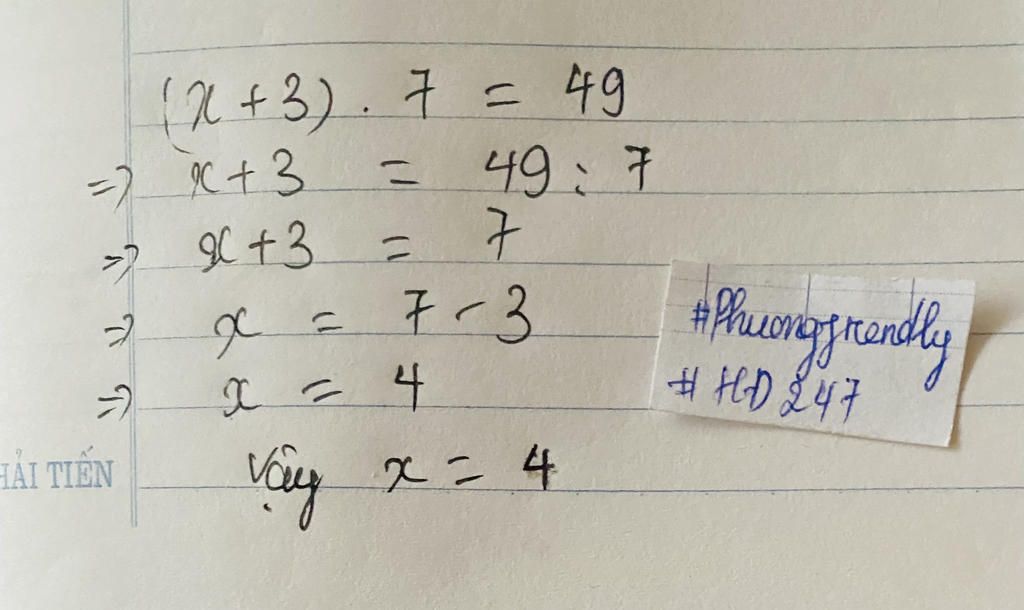 (x+3) . 7 = 49
=> x+3 = 49 : 7
=> x+3 = 7
=> x = 7 - 3
=> x = 4
Vậy x = 4
#Phuongfrendly
# HD 247
HẢI TIẾN